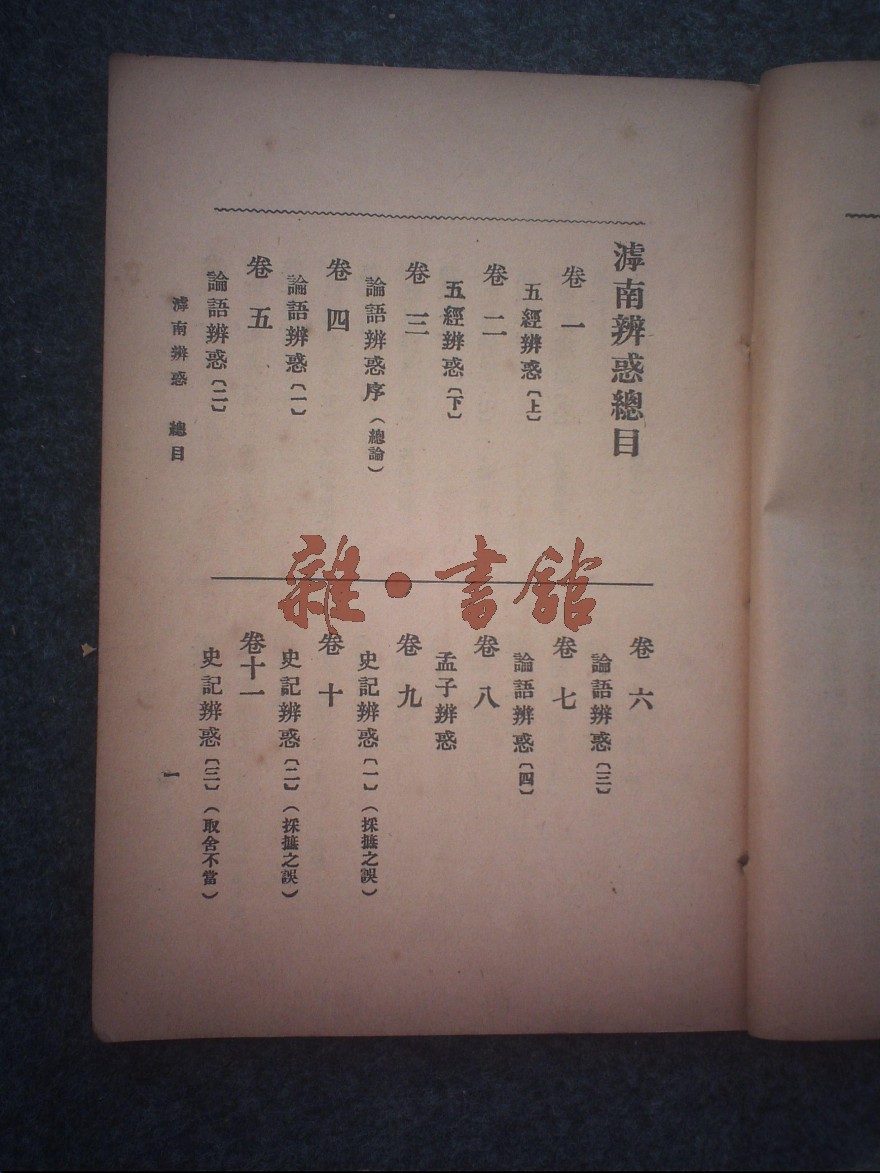 滹南辨惑總目
卷一
五經辨惑〔上〕
卷二
五經辨惑〔下〕
卷三
論語辨惑序（總論）
卷四
論語辨惑〔一〕
卷五
論語辨惑〔二〕
卷六
論語辨惑〔三〕
卷七
論語辨惑〔四〕
卷八
孟子辨惑
卷九
史記辨惑〔一〕（採摭之誤）
卷十
史記辨惑〔二〕（採摭之誤）
卷十一
史記辨惑〔三〕（取舍不當）
滹南辨惑　總目
一
雜・書館